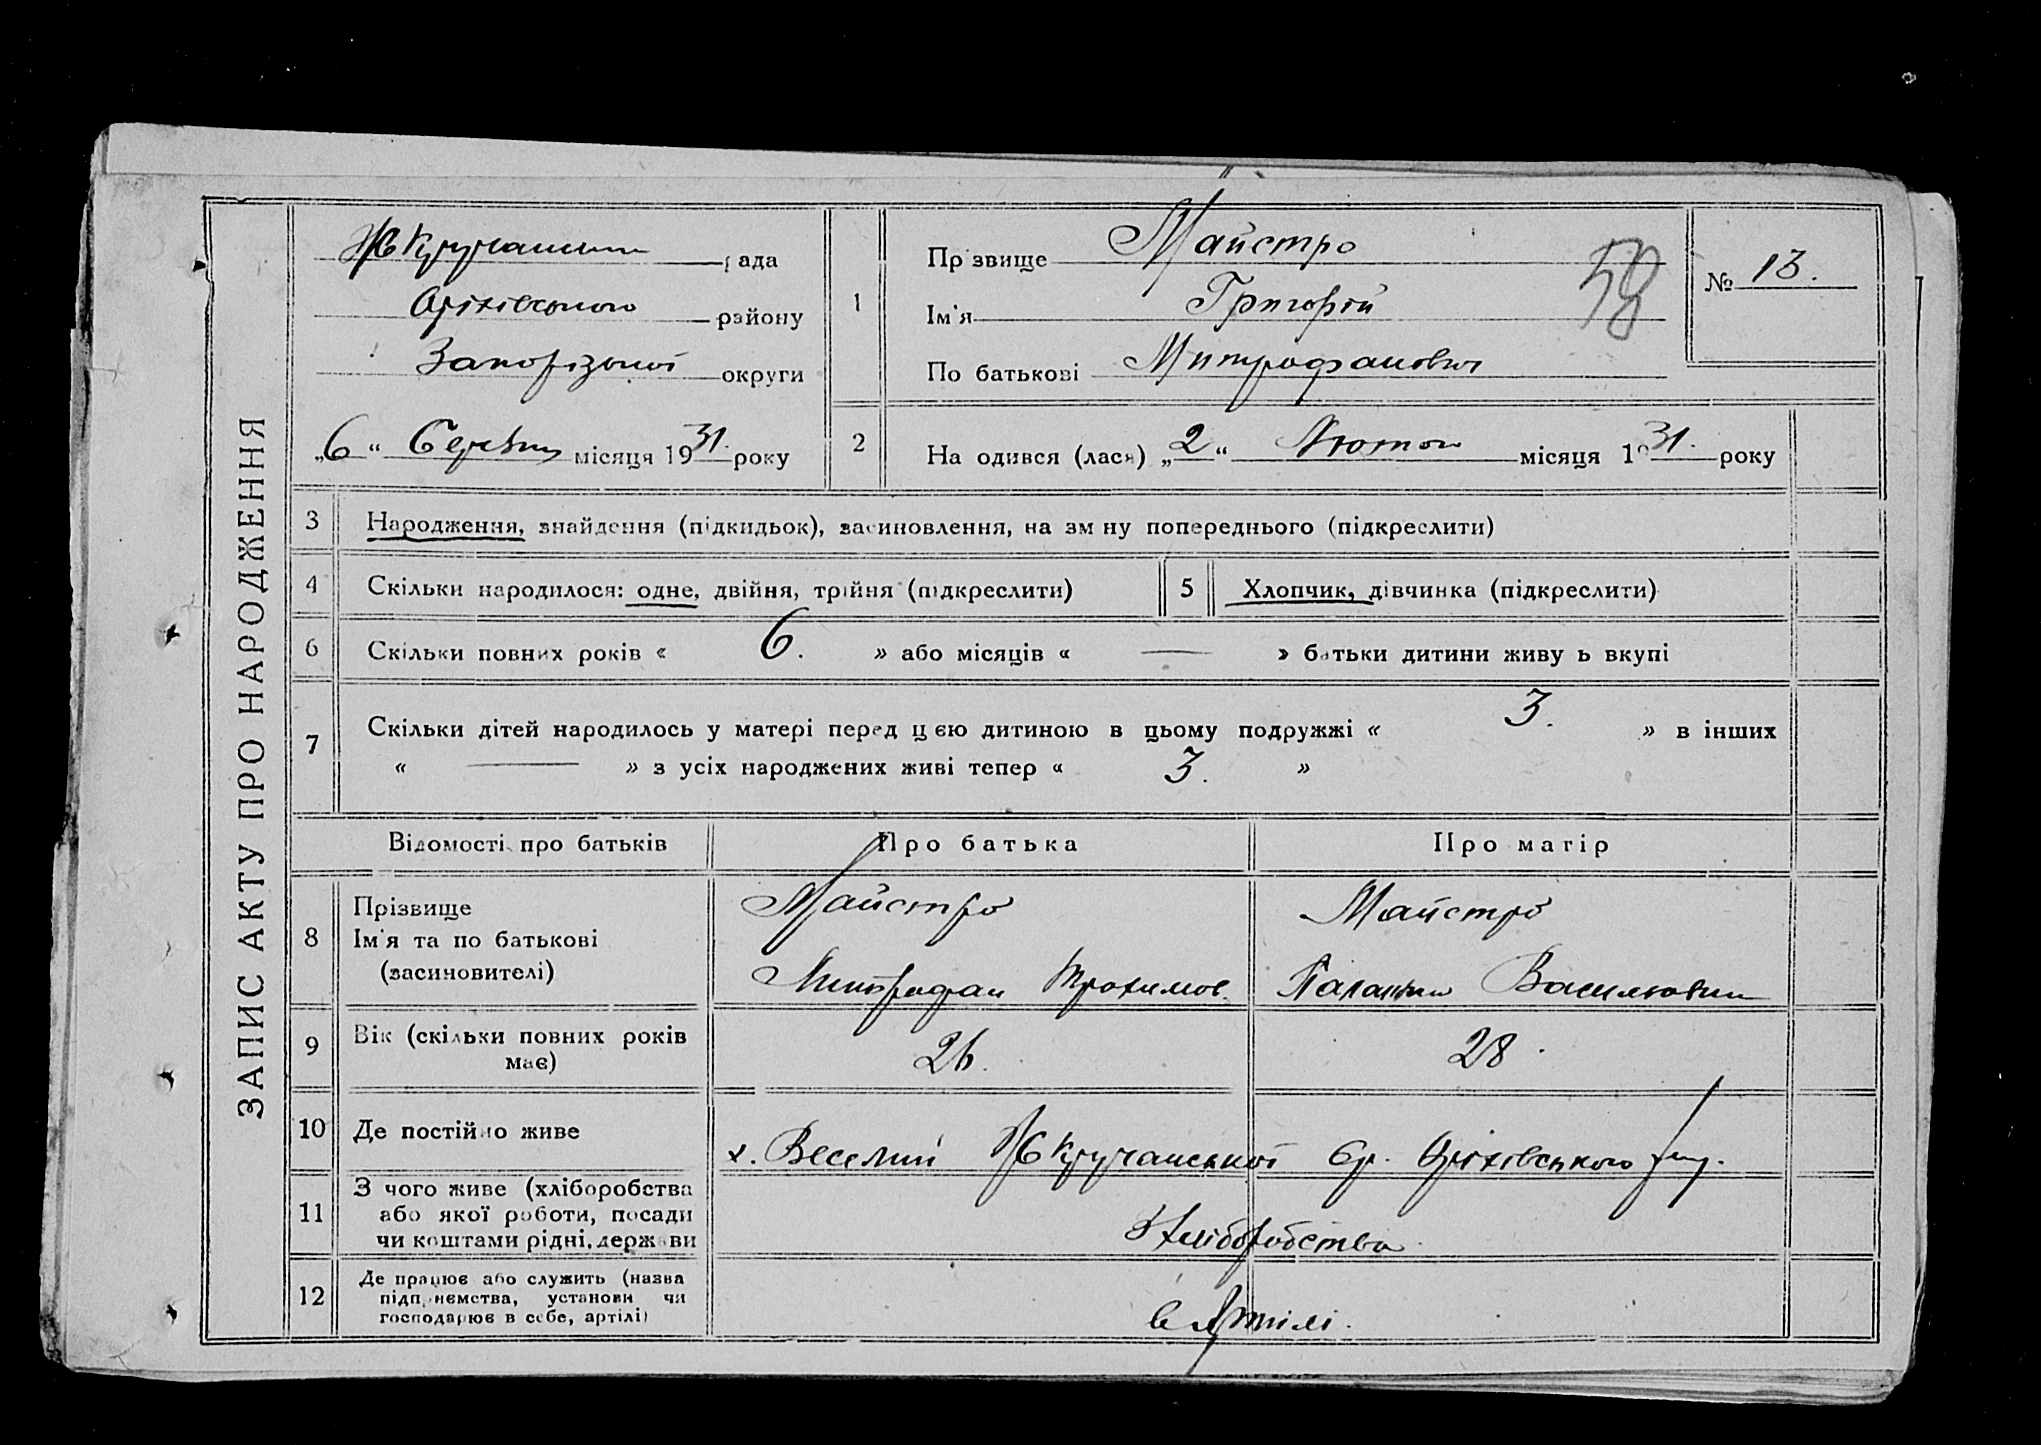 ЗАПИС АКТУ ПРО НАРОДЖЕННЯ
рада
Оріхівського району
Запорізької округи
„6“ Березня місяця 1931. року
1
Прізвище Майстро
Ім'я Григорій
По батькові Митрофанович
58
№ 13.
2
Народився (лася) „2“ Лютого місяця 1931. року
3 Народження, знайдення (підкидьок), засиновлення, на зміну попереднього (підкреслити)
4 Скільки народилося: одне, двійня, трійня (підкреслити) 5 Хлопчик, дівчинка (підкреслити)
6 Скільки повних років « 6. » або місяців « — » батьки дитини живуть вкупі
7 Скільки дітей народилось у матері перед цією дитиною в цьому подружжі « 3. » в інших
« — » з усіх народжених живі тепер « 3. »
Відомості про батьків Про батька Про матір
8 Прізвище
Ім'я та по батькові
(засиновителі)
Майстро
Митрофан Трохимов.
Майстро
Василювна
9 Вік (скільки повних років
має)
26. 28.
10 Де постійно живе х. Веселий Оріхівського
11 З чого живе (хліборобства
або якої роботи, посади
чи коштами рідні, держави
Хліборобства
12 Де працює або служить (назва
підприємства, установи чи
господарює в себе, артілі)
в Артілі.